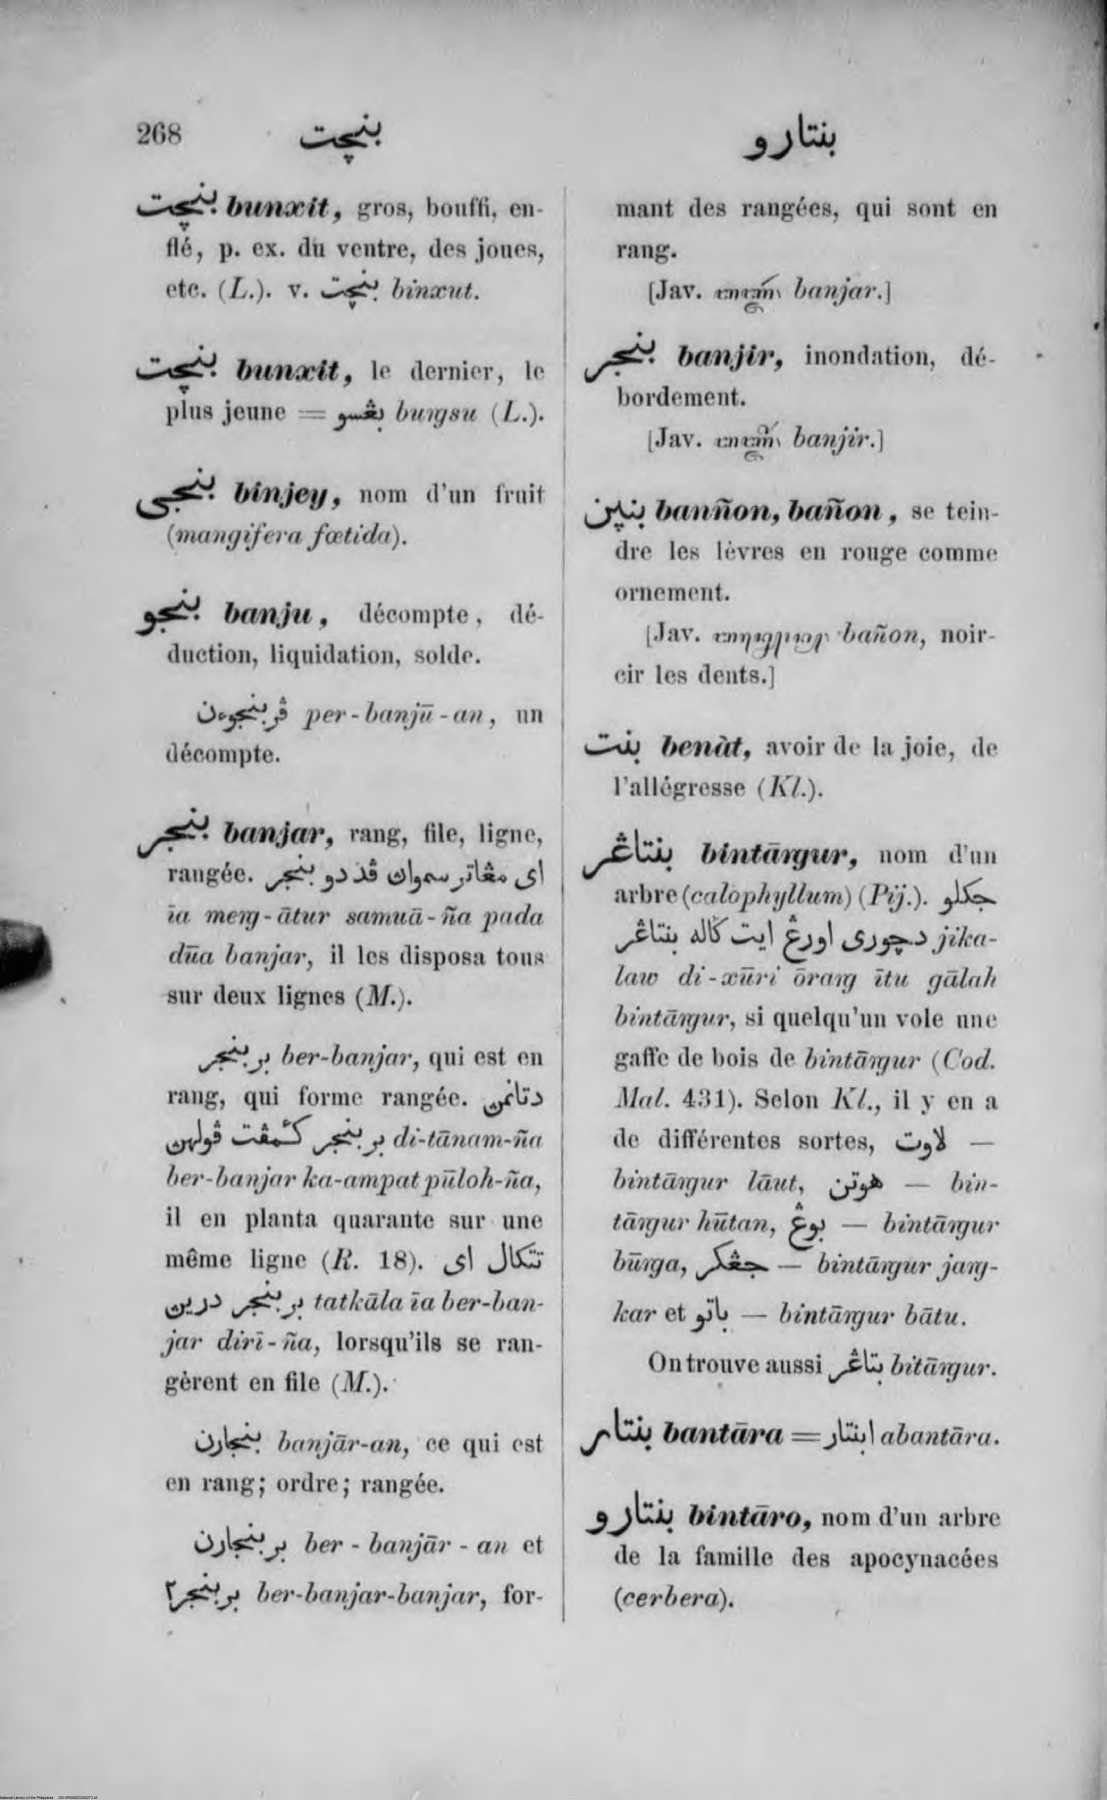 268 بنچت بنتارو
بنچت bunxit, gros, bouffi, en-
flé, p. ex. du ventre, des joues,
etc. (L.). v. بنچت binxut.
بنچت bunxit, le dernier, le
plus jeune = بڠسو buṅgsu (L.).
بنجي binjey, nom d'un fruit
(mangifera fœtida).
بنجو banju, décompte, dé-
duction, liquidation, solde.
ڤربنجوءن per-banjū-an, un
décompte.
بنجر banjar, rang, file, ligne,
rangée. اى مڠاتر سموان ڤد دو بنجر
īa meṅg-ātur samuā-ña pada
dūa banjar, il les disposa tous
sur deux lignes (M.).
بربنجر ber-banjar, qui est en
rang, qui forme rangée. دتانمن
بربنجر كأمڤت ڤولهن di-tānam-ña
ber-banjar ka-ampat pūloh-ña,
il en planta quarante sur une
même ligne (R. 18). تتكال اى
بربنجر درين tatkāla īa ber-ban-
jar dirī-ña, lorsqu'ils se ran-
gèrent en file (M.).
بنجارن banjār-an, ce qui est
en rang; ordre; rangée.
بربنجارن ber-banjār-an et
بربنجر٢ ber-banjar-banjar, for-
mant des rangées, qui sont en
rang.
[Jav. banjar.]
بنجر banjir, inondation, dé-
bordement.
[Jav. banjir.]
بنڽن banñon, bañon, se tein-
dre les lèvres en rouge comme
ornement.
[Jav. bañon, noir-
cir les dents.]
بنت benàt, avoir de la joie, de
l'allégresse (Kl.).
بنتاڠر bintāṅgur, nom d'un
arbre (calophyllum) (Pij.). جكلو
دچورى اورڠ ايت ݢاله بنتاڠر jika-
law di-xūri ōraṅg ītu gālah
bintāṅgur, si quelqu'un vole une
gaffe de bois de bintāṅgur (Cod.
Mal. 431). Selon Kl., il y en a
de différentes sortes, لاوت —
bintāṅgur lāut, هوتن — bin-
tāṅgur hūtan, بوڠ — bintāṅgur
būṅga, جڠكر — bintāṅgur jaṅg-
kar et باتو — bintāṅgur bātu.
On trouve aussi بتاڠر bitāṅgur.
بنتار bantāra = ابنتار abantāra.
بنتارو bintāro, nom d'un arbre
de la famille des apocynacées
(cerbera).